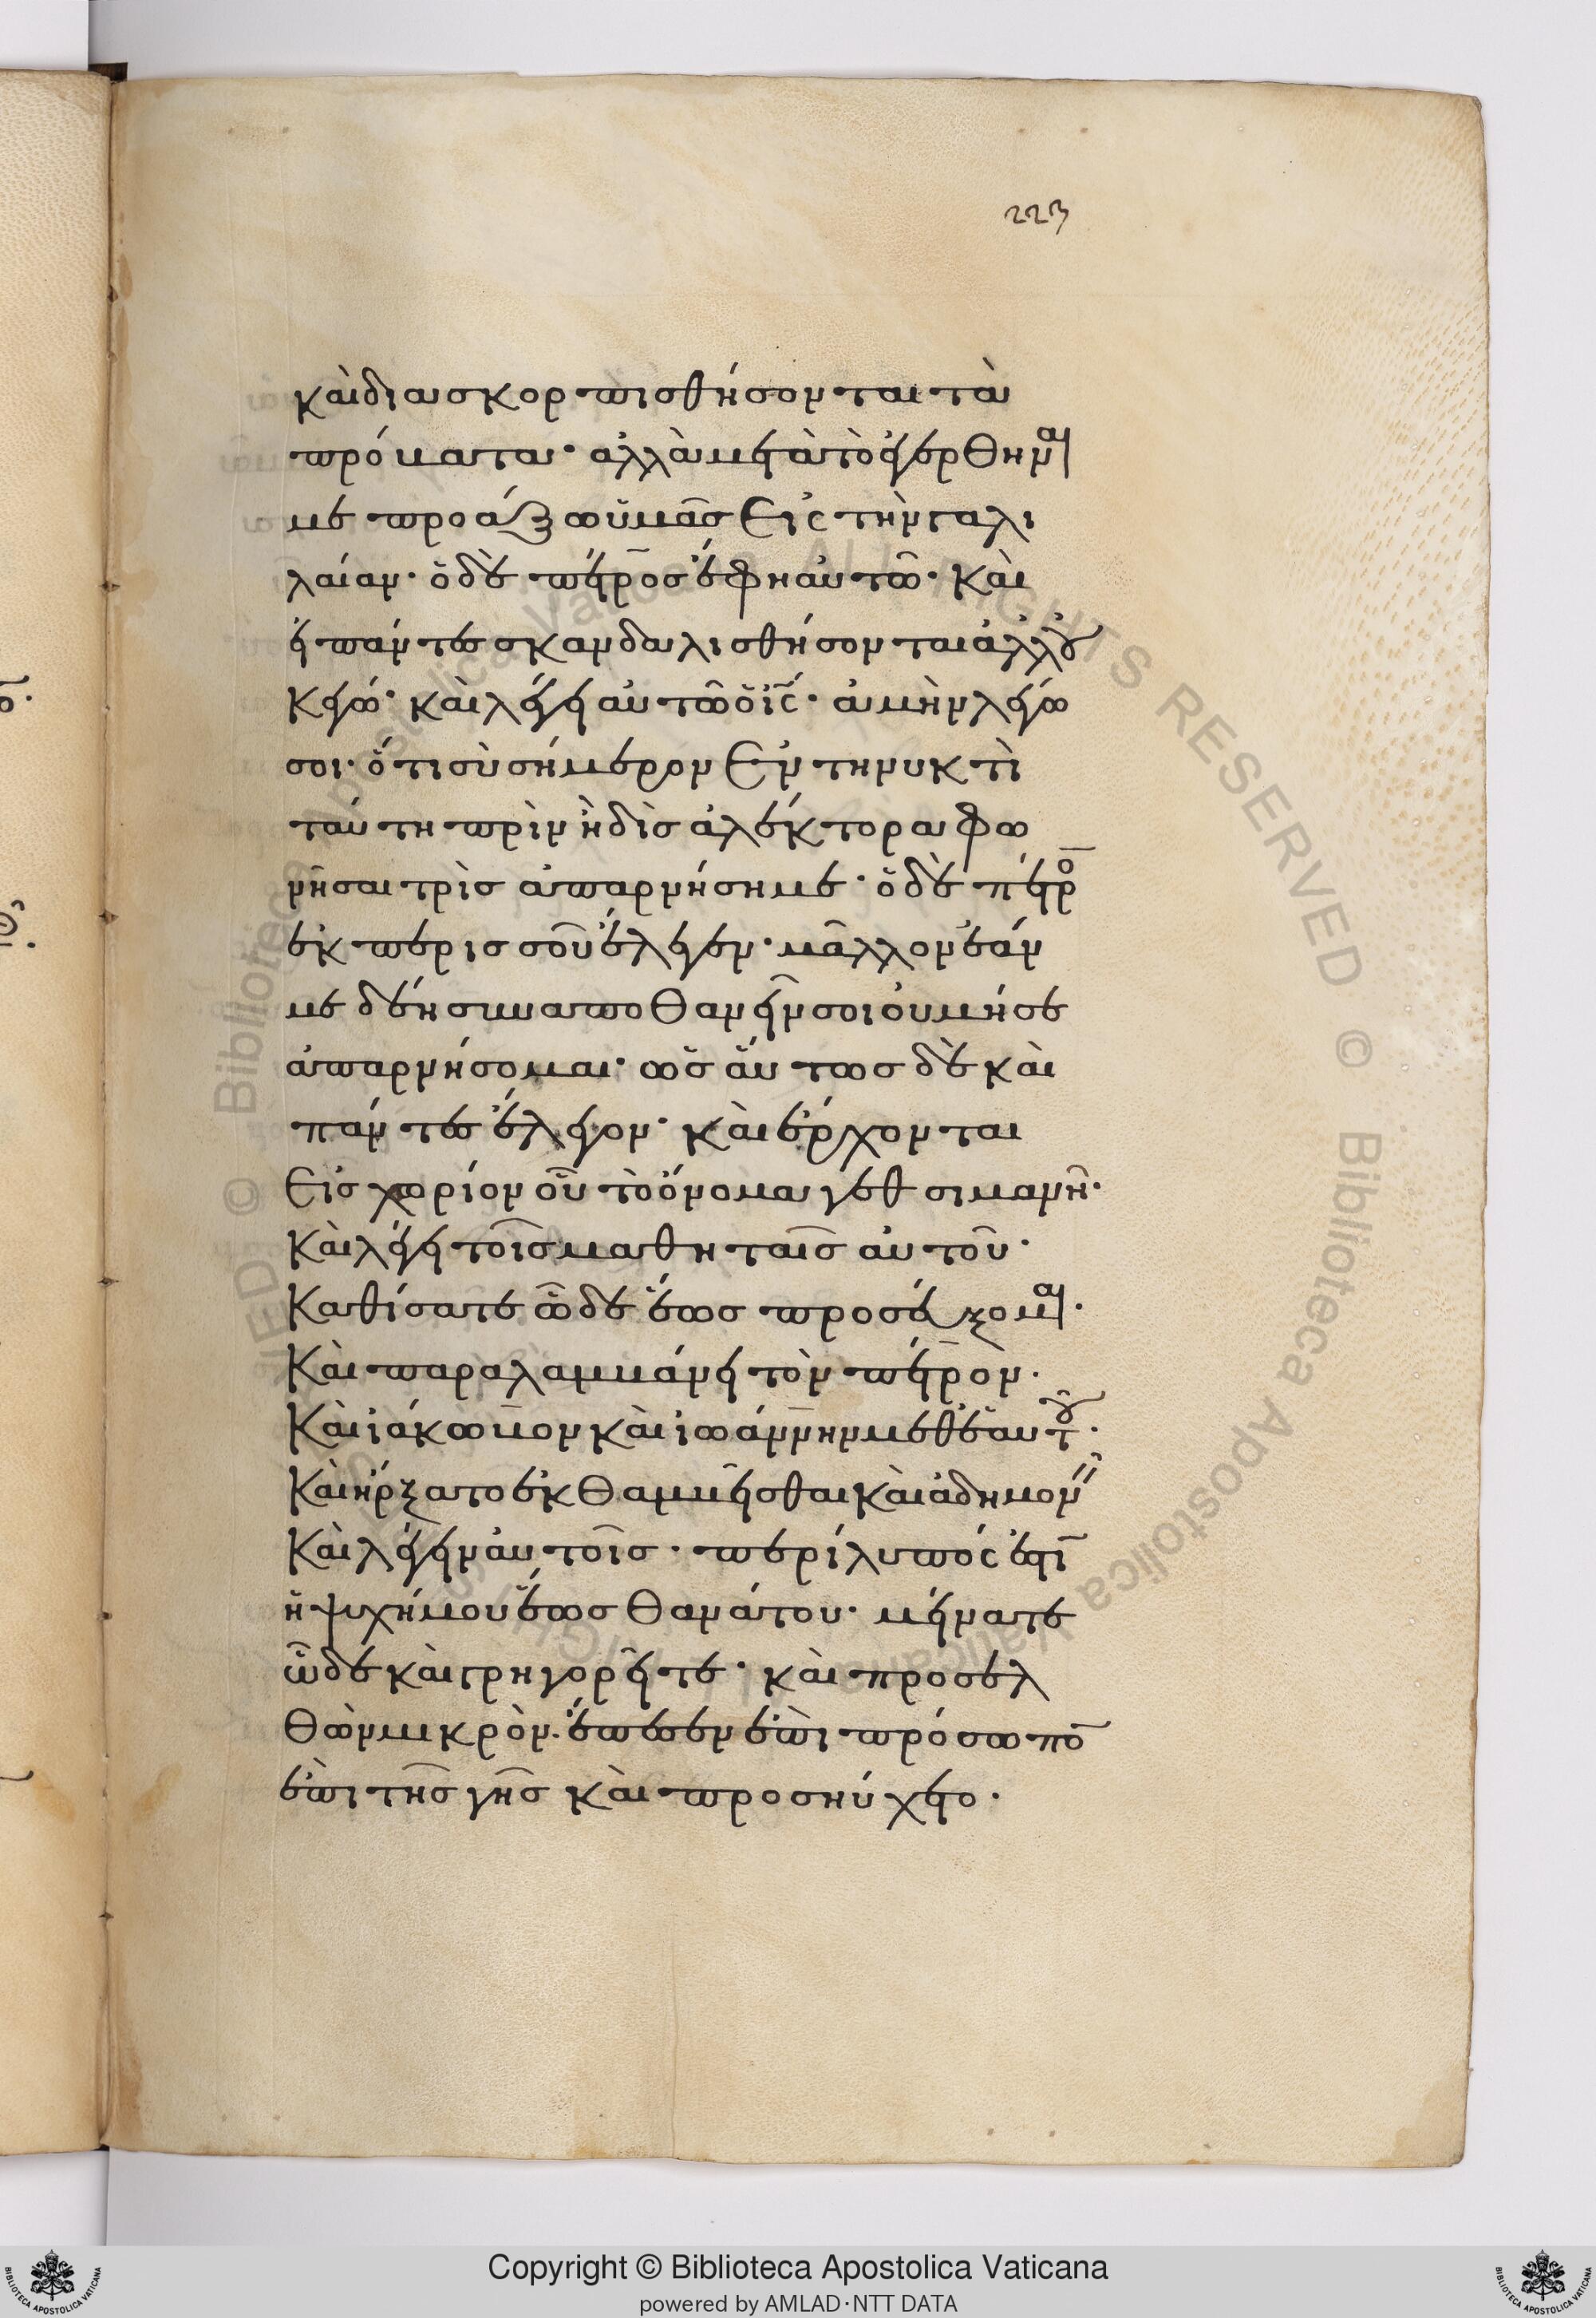 223
καὶ διασκορπισθήσονται τὰ
πρόβατα· ἀλλὰ μετὰ τὸ ἐγερθῆναι
με προάξω ὑμᾶς εἰς τὴν γαλι
λαίαν· ὁ δὲ πέτρος ἔφη αὐτῶ· καὶ
εἰ πάντες σκανδαλισθήσονται ἀλλ' οὐ
κ ἐγώ· καὶ λέγει αὐτῶ ὁ ις· ἀμὴν λέγω
σοι· ὅτι σὺ σήμερον ἐν τη νυκτὶ
ταύτη πρὶν ἢ δὶς ἀλέκτορα φω
νῆσαι τρὶς ἀπαρνήση με· ὁ δὲ πέτρο
ἐκ περισσοῦ ἔλεγεν· μᾶλλον ἐάν
με δέη συναποθανεῖν σοι οὐ μή σε
ἀπαρνήσομαι· ὡσαύτως δὲ καὶ
πάντες ἔλεγον· καὶ ἔρχονται
εἰς χωρίον οὗ τὸ ὄνομα γεθσιμανῆ·
καὶ λέγει τοῖς μαθηταῖς αὐτοῦ·
καθίσατε ὧδε ἕως προσεύξομαι·
καὶ παραλαμβάνει τὸν πέτρὸν·
καὶ ἰάκωβον καὶ ἰωάννην μεθ' ἑαυτοῦ·
καὶ ἤρξατο ἐκθαμβεῖσθαι καὶ ἀδημονεῖν
καὶ λέγειν αὐτοῖς· περίλυπός ἐστῑ
ἡ ψυχή μου ἕως θανάτου· μείνατε
ὧδε καὶ γρηγορεῖτε· καὶ προσελ
θὼν μικρὸν· ἔπεσεν ἐπὶ πρόσωπο̄
ἐπὶ τῆς γῆς καὶ προσηύχετο·
Copyright © Biblioteca Apostolica Vaticana
powered by AMLAD·NTT DATA